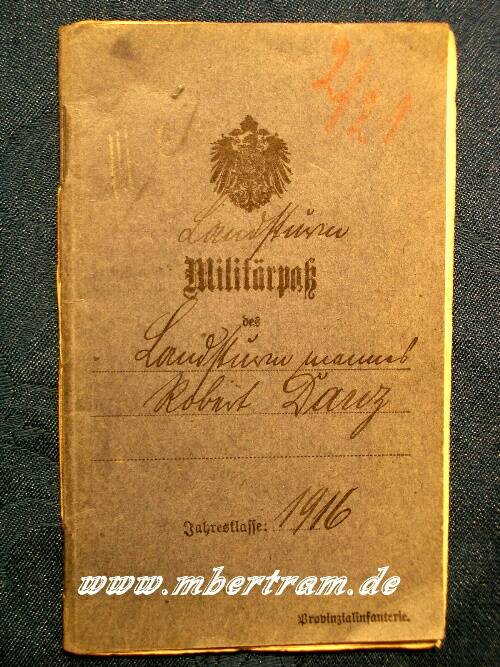 2/21
Landsturm
Militärpaß
des
Landsturm mannes
Robert Danz
Jahresklasse: 1916
www.mbertram.de
Provinzialinfanterie.